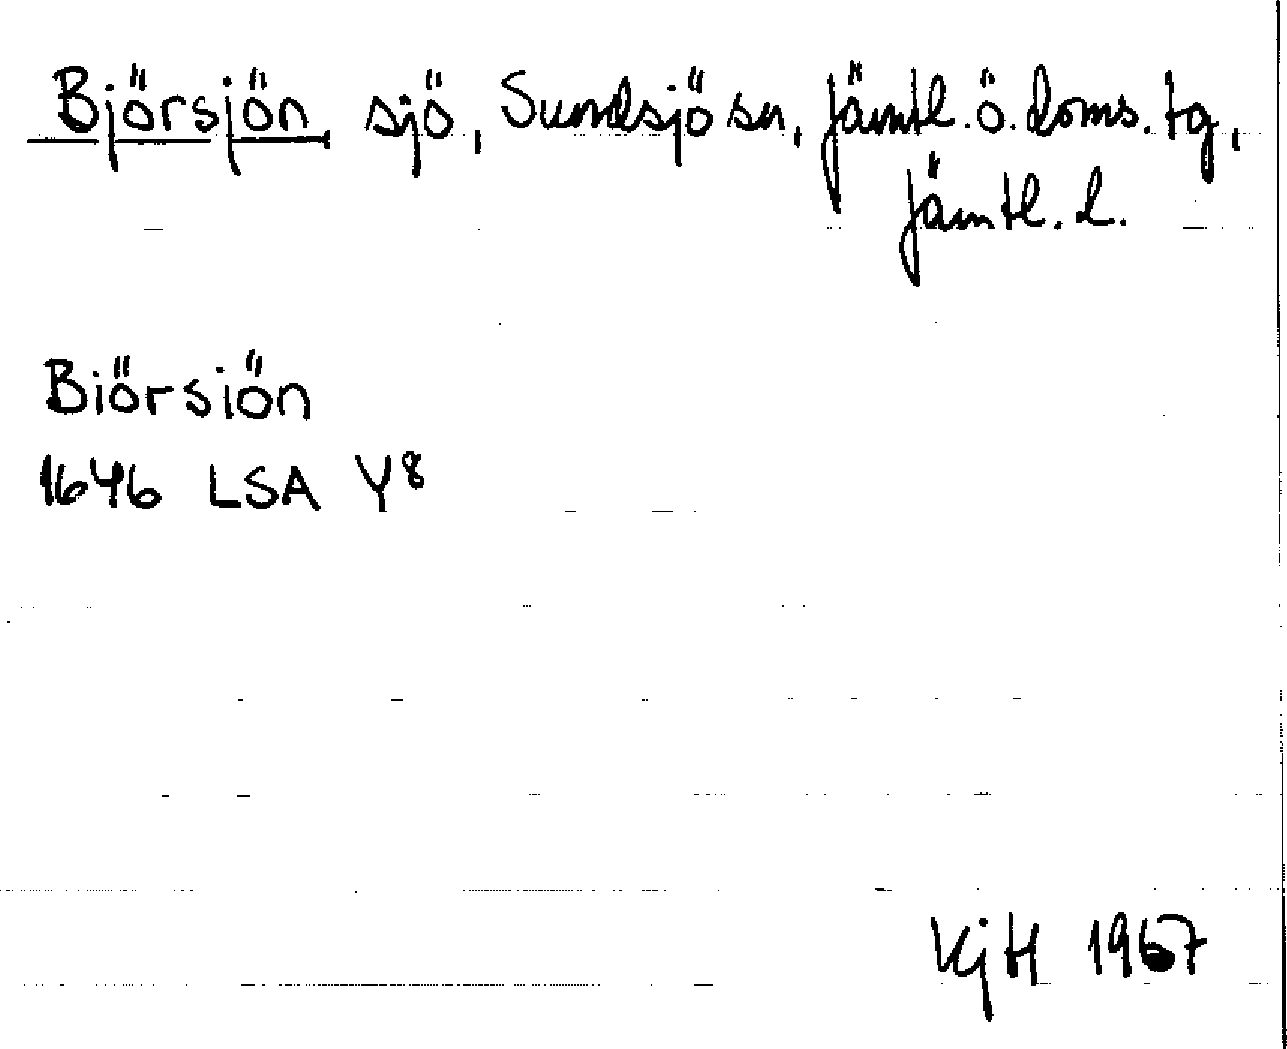 Björsjön sjö, Sundsjö sn, Jämtl. ö. doms. tg,
Jämtl. l.
Biörsiön
1646 LSA Y8
KjH 1967